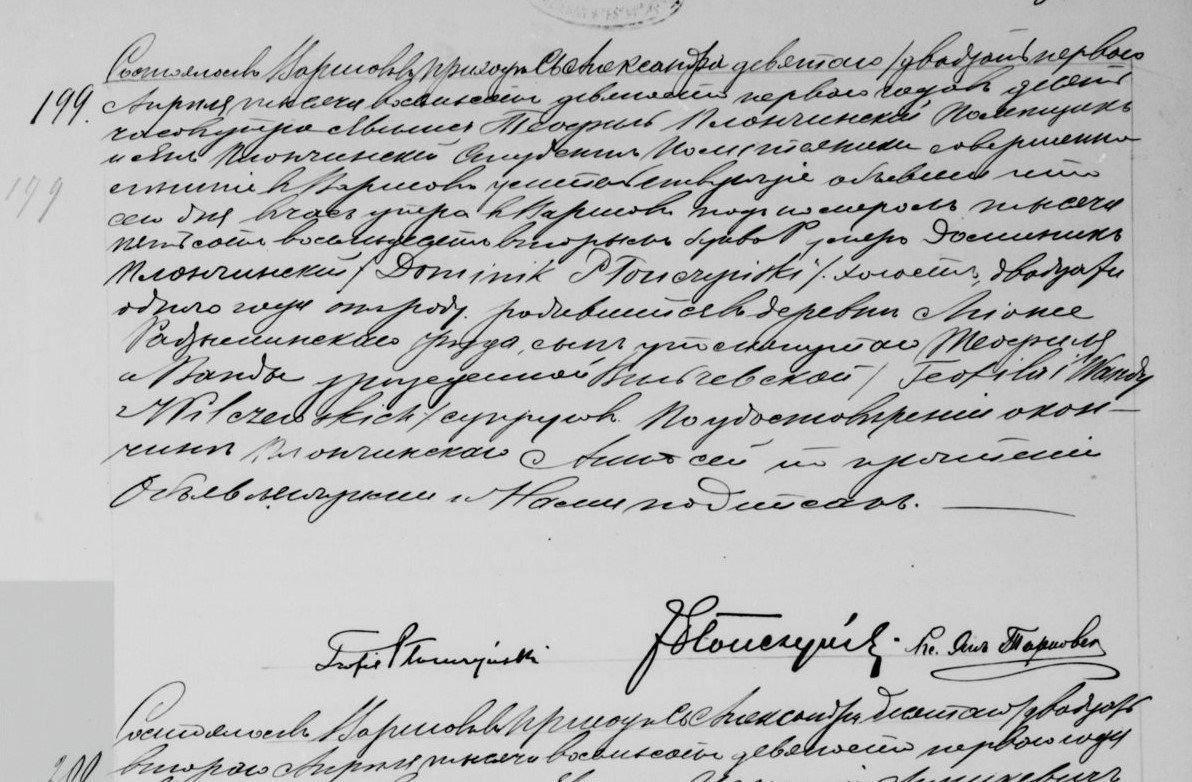 199.
Состоялось в Варшовѣ въ приходѣ Св. Александра девятаго /двадцать перваго
Апрѣля тысяча восемьсотъ девяносто перваго года въ девять
часовъ утра. Явились Теофиль Плончинскій Помѣщикъ
и Янъ Плончинскій Студентъ совершенно
лѣтніе въ Варшовѣ жительствующіе и объявили что
сего дня въ часъ утра въ Варшовѣ подъ номеромъ тысяча
пятьсотъ восемьдесятъ вторымъ буква Р умеръ Доминикъ
Плончинскій /Dominik Płończyński/ холостъ, двадцати
одного года отъ роду, родившійся въ деревнѣ
Радыминскаго уѣзда, сынъ упомянутаго Теофиля
и Ванды урожденной Вильчевской / Teofila i Wandy
z Wilczewskich / супруговъ. По удостовѣреніи о кон-
чинѣ Плончинскаго Актъ сей по прочтеніи
Объявляющими и Нами подписанъ.
Teofil Płończyński J Płończyński Кс. Янъ
Состоялось в Варшовѣ въ приходѣ Св. Александра десятаго /двадцать
втораго Апрѣля тысяча восемьсотъ девяносто перваго года
200